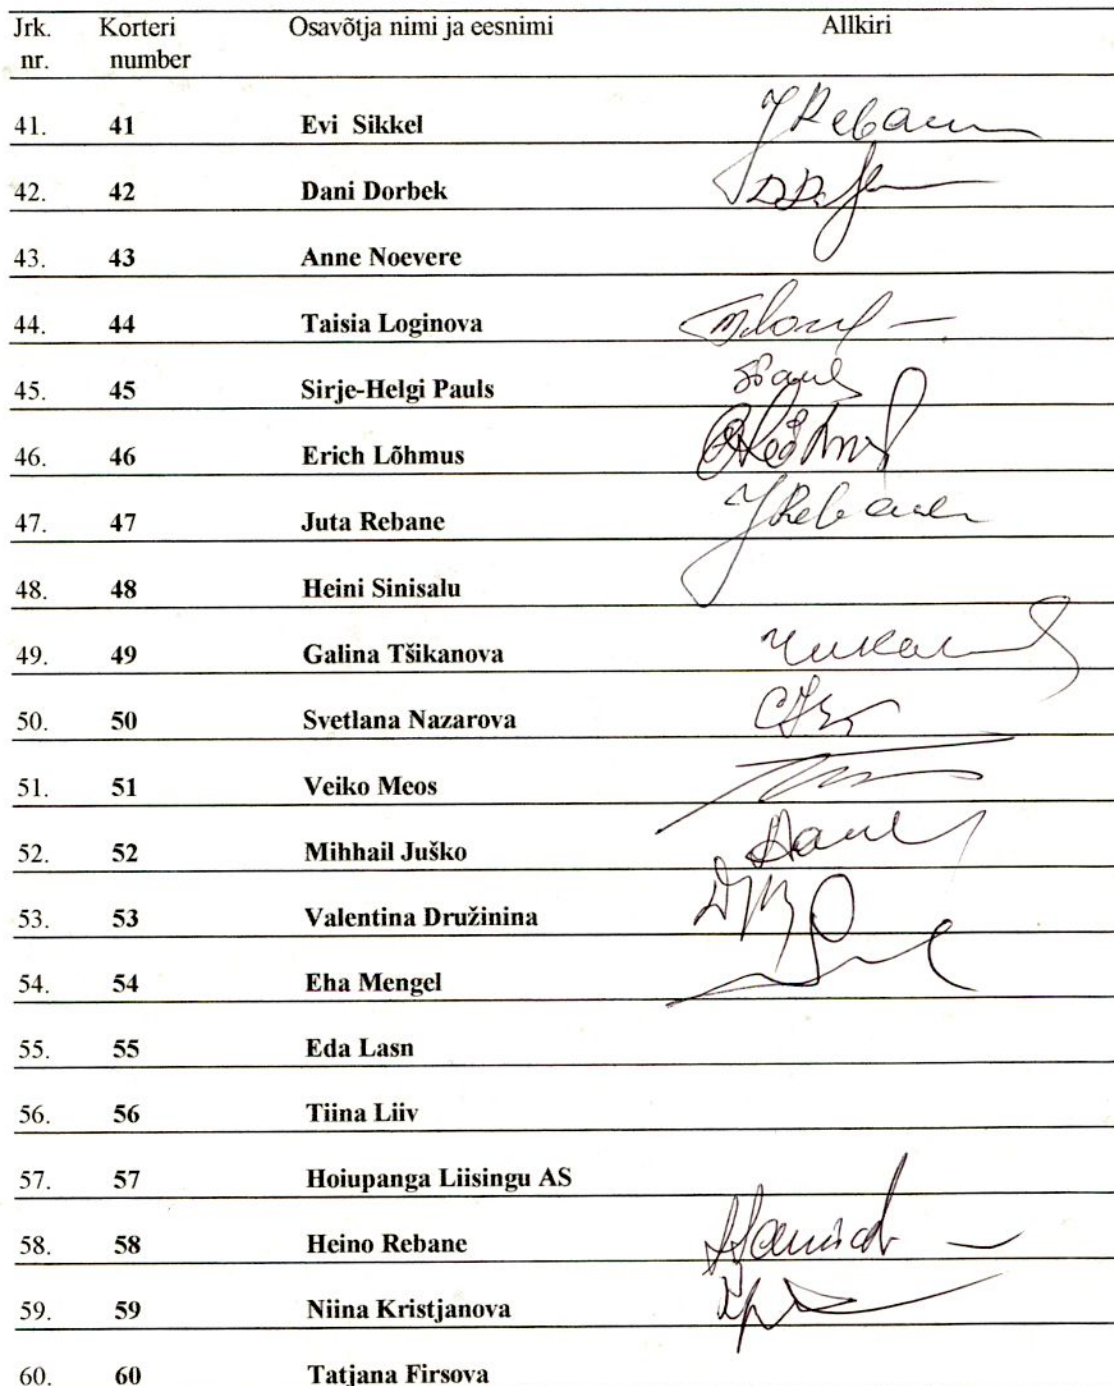 Jrk. Korteri Osavõtja nimi ja eesnimi Allkiri
nr. number
41. 41 Evi Sikkel JRebane
42. 42 Dani Dorbek
43. 43 Anne Noevere
44. 44 Taisia Loginova
45. 45 Sirje-Helgi Pauls
46. 46 Erich Lõhmus
47. 47 Juta Rebane JRebane
48. 48 Heini Sinisalu
49. 49 Galina Tšikanova
50. 50 Svetlana Nazarova
51. 51 Veiko Meos
52. 52 Mihhail Juško
53. 53 Valentina Družinina
54. 54 Eha Mengel
55. 55 Eda Lasn
56. 56 Tiina Liiv
57. 57 Hoiupanga Liisingu AS
58. 58 Heino Rebane
59. 59 Niina Kristjanova
60. 60 Tatjana Firsova